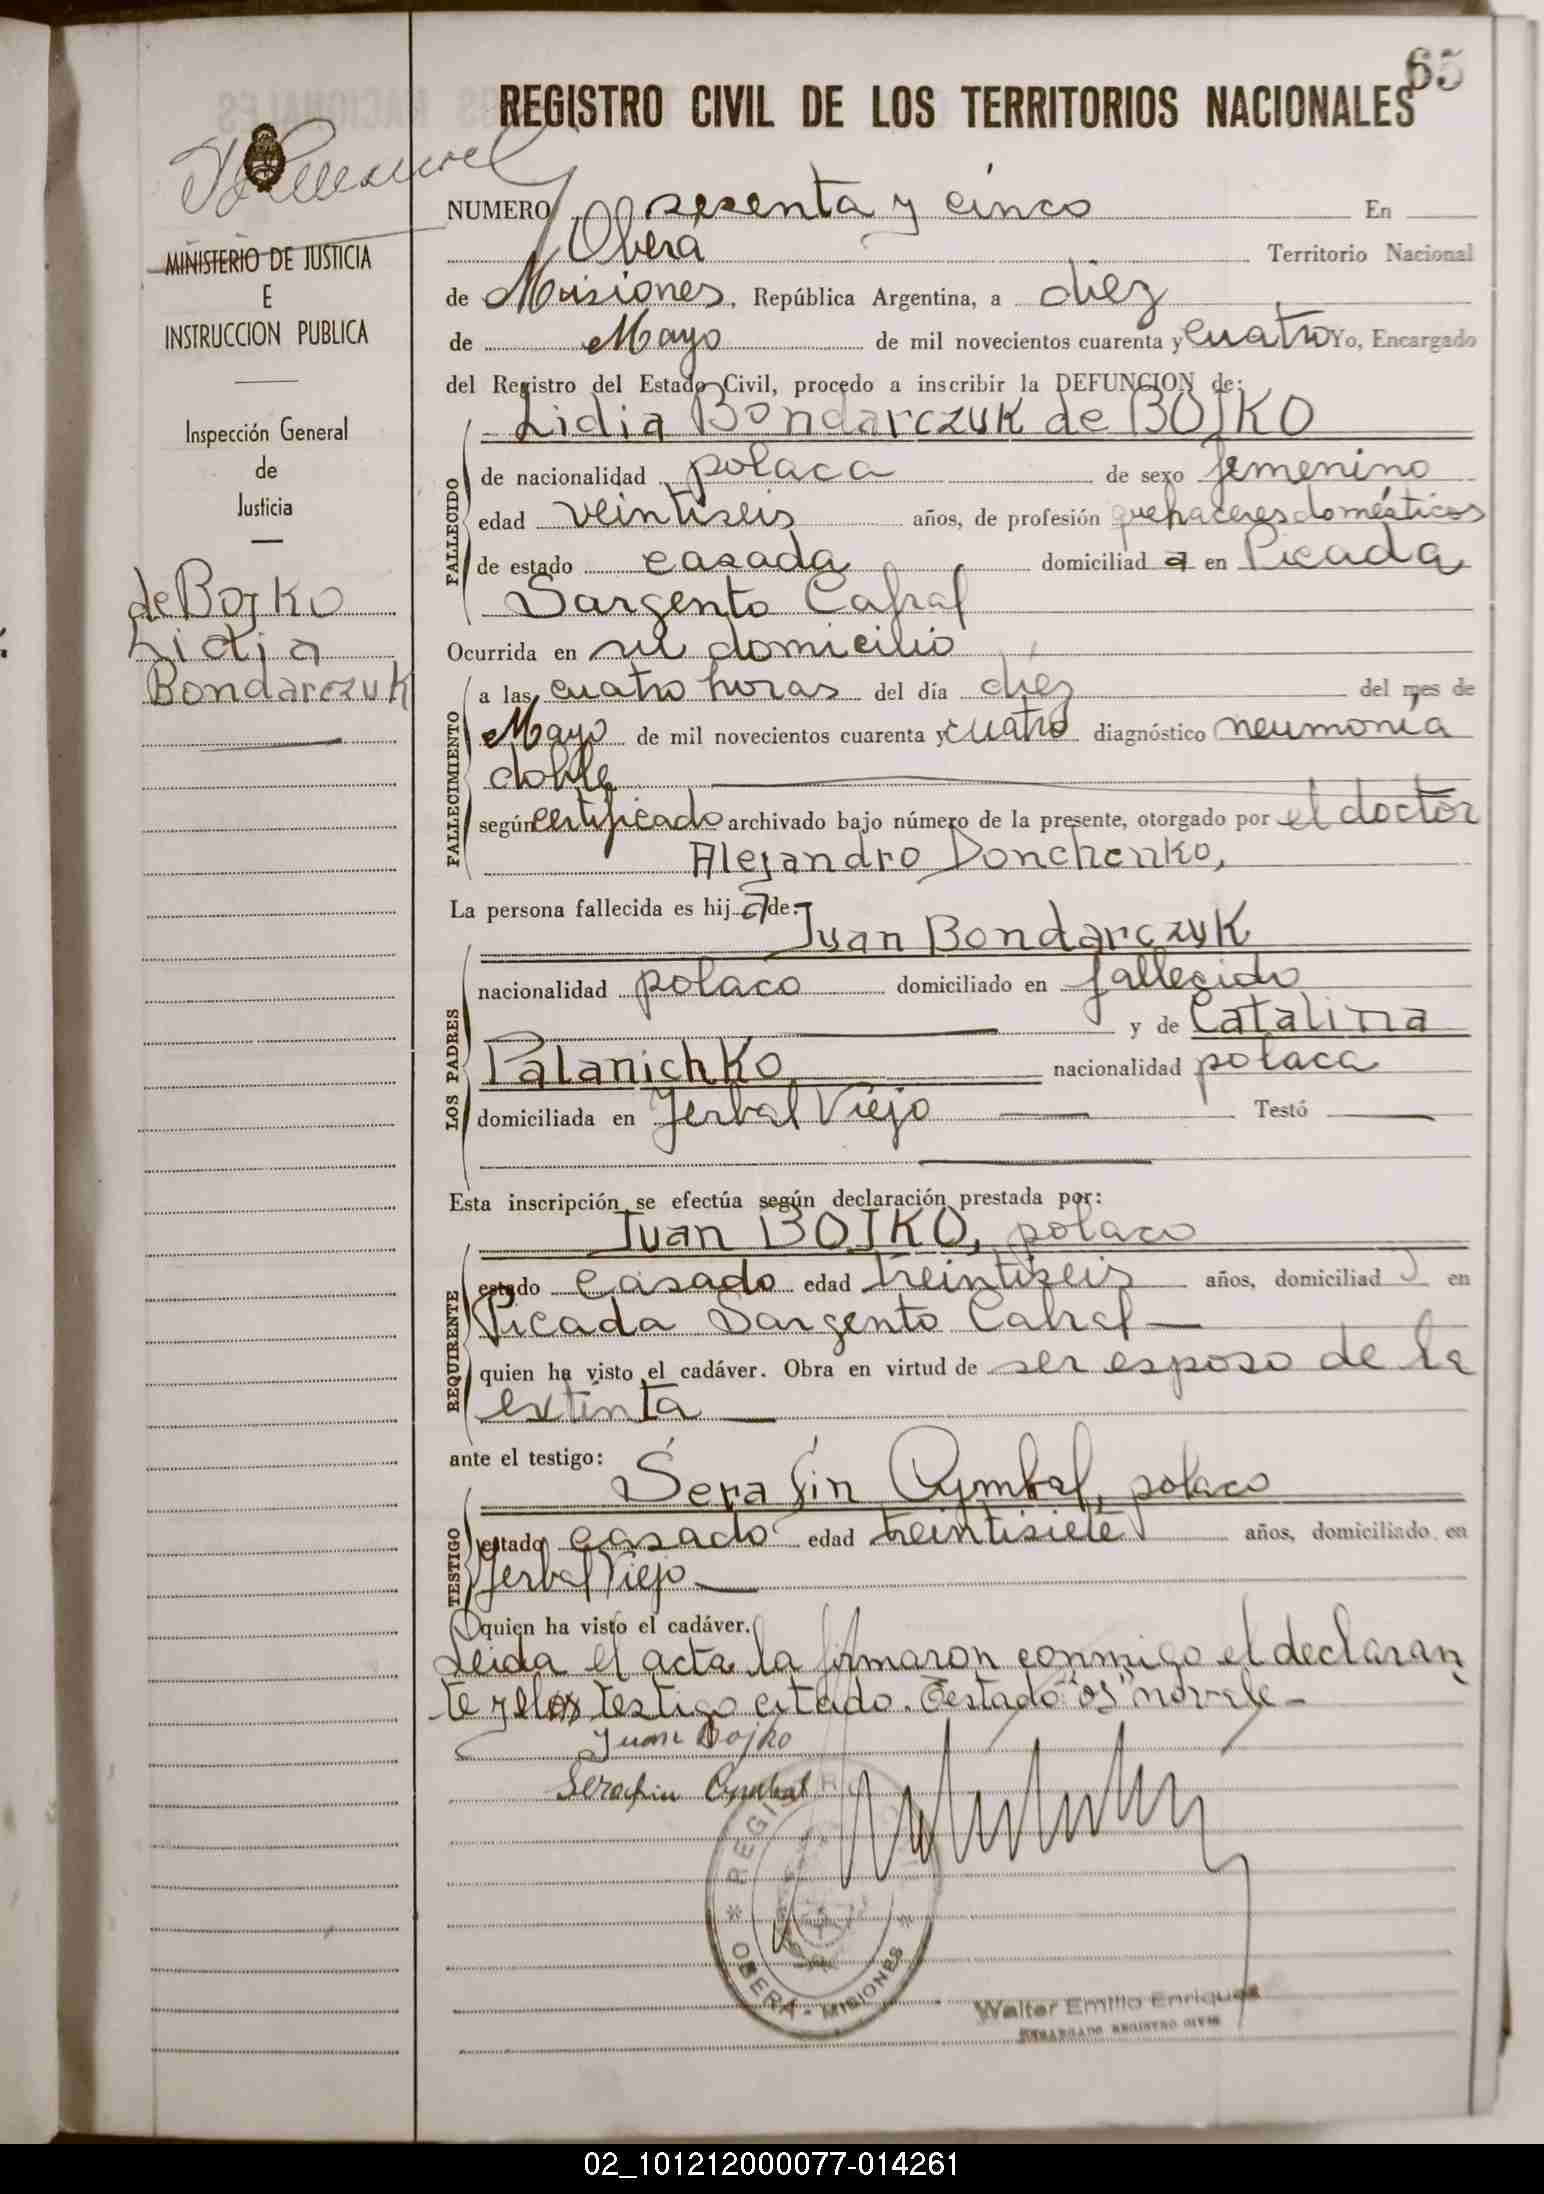 65
REGISTRO CIVIL DE LOS TERRITORIOS NACIONALES
MINISTERIO DE JUSTICIA
E
INSTRUCCION PUBLICA
Inspección General
de
Justicia
de BOJKO
Lidia
Bondarczuk
NUMERO sesenta y cinco En
Oberá Territorio Nacional
de Misiones, República Argentina, a diez
de Mayo de mil novecientos cuarenta y cuatro Yo, Encargado
del Registro del Estado Civil, procedo a inscribir la DEFUNCION de:
Lidia Bondarczuk de BOJKO
FALLECIDO
de nacionalidad polaca de sexo femenino
edad veintiseis años, de profesión quehaceres domésticos
de estado casada domiciliad a en Picada
Sargento Cabral
Ocurrida en su domicilio
FALLECIMIENTO
a las cuatro horas del día diez del mes de
Mayo de mil novecientos cuarenta y cuatro diagnóstico neumonía
doble
según certificado archivado bajo número de la presente, otorgado por el doctor
Alejandro Donchenko,
La persona fallecida es hij a de:
Juan Bondarczuk
LOS PADRES
nacionalidad polaco domiciliado en fallecido
y de Catalina
Palanichko nacionalidad polaca
domiciliada en Yerbal Viejo Testó
Esta inscripción se efectúa según declaración prestada por:
Juan BOJKO, polaco
REQUIRENTE
estado casado edad treintiseis años, domiciliad o en
Picada Sargento Cabral
quien ha visto el cadáver. Obra en virtud de ser esposo de la
extinta
ante el testigo:
Serafín Cymbal, polaco
TESTIGO
estado casado edad treintisiete años, domiciliado en
Yerbal Viejo
quien ha visto el cadáver.
Leida el acta la firmaron conmigo el declaran
te y el testigo citado. Testado "os" no vale-
Juan Bojko
Serafin Cymbal
REGISTRO CIVIL * OBERA - MISIONES *
Walter Emilio Enriquez
ENCARGADO REGISTRO CIVIL
02_101212000077-014261